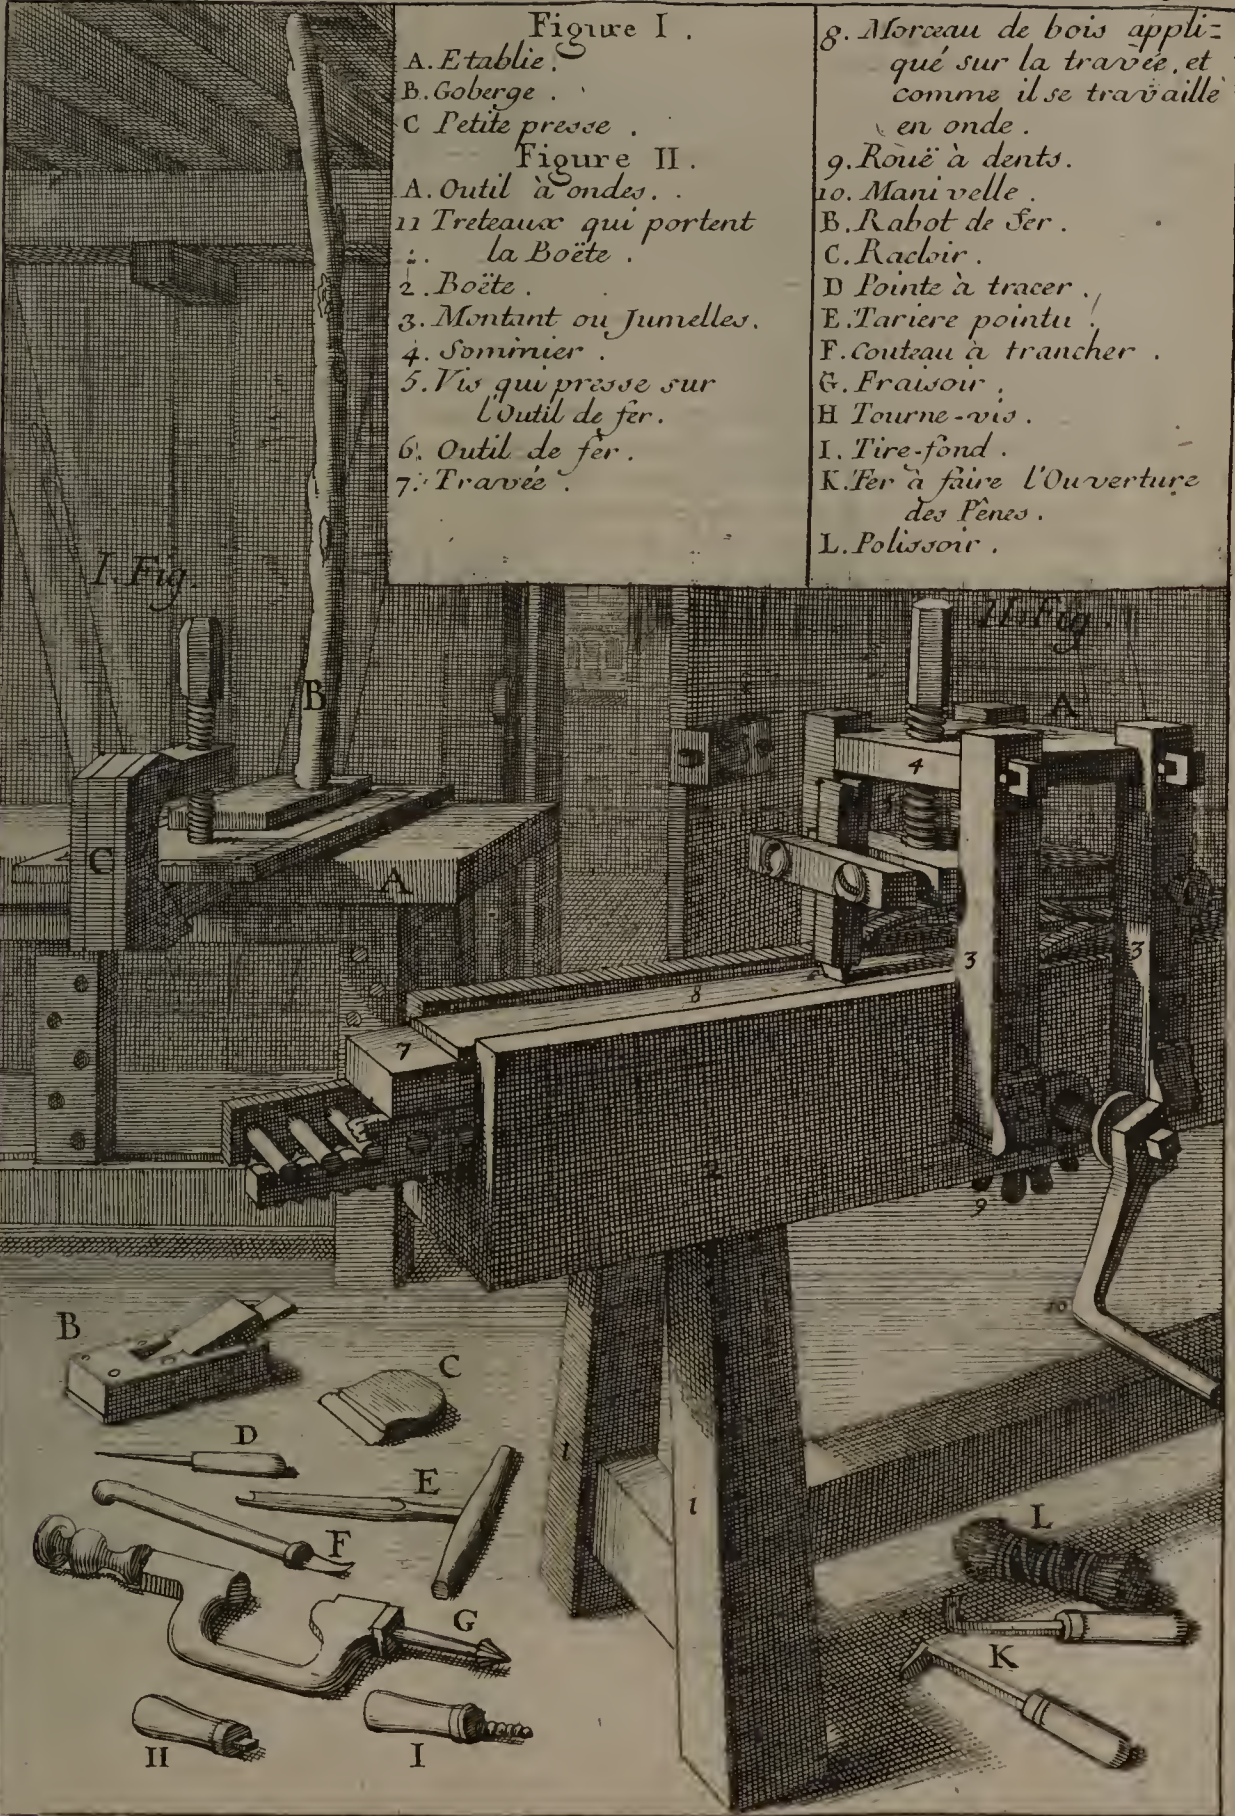 Figure I.
A. Etablie.
B. Goberge.
C Petite presse.
Figure II.
A. Outil à ondes.
11 Treteaux qui portent
la Boëte.
2. Boëte.
3. Montant ou Jumelles.
4. Sommier.
5. Vis qui presse sur
l'Outil de fer.
6. Outil de fer.
7. Travée.
8. Morceau de bois appli=
qué sur la travée, et
comme il se travaille
en onde.
9. Rouë à dents.
10. Manivelle.
B. Rabot de fer.
C. Racloir.
D Pointe à tracer.
E. Tariere pointu.
F. Couteau à trancher.
G. Fraisoir.
H Tourne-vis.
I. Tire-fond.
K. Fer à faire l'Ouverture
des Pênes.
L. Polissoir.
I. Fig.
II. Fig.
B
A
4
C
A
3
3
8
7
2
9
10
B
C
D
E
F
G
H
I
1
1
L
K